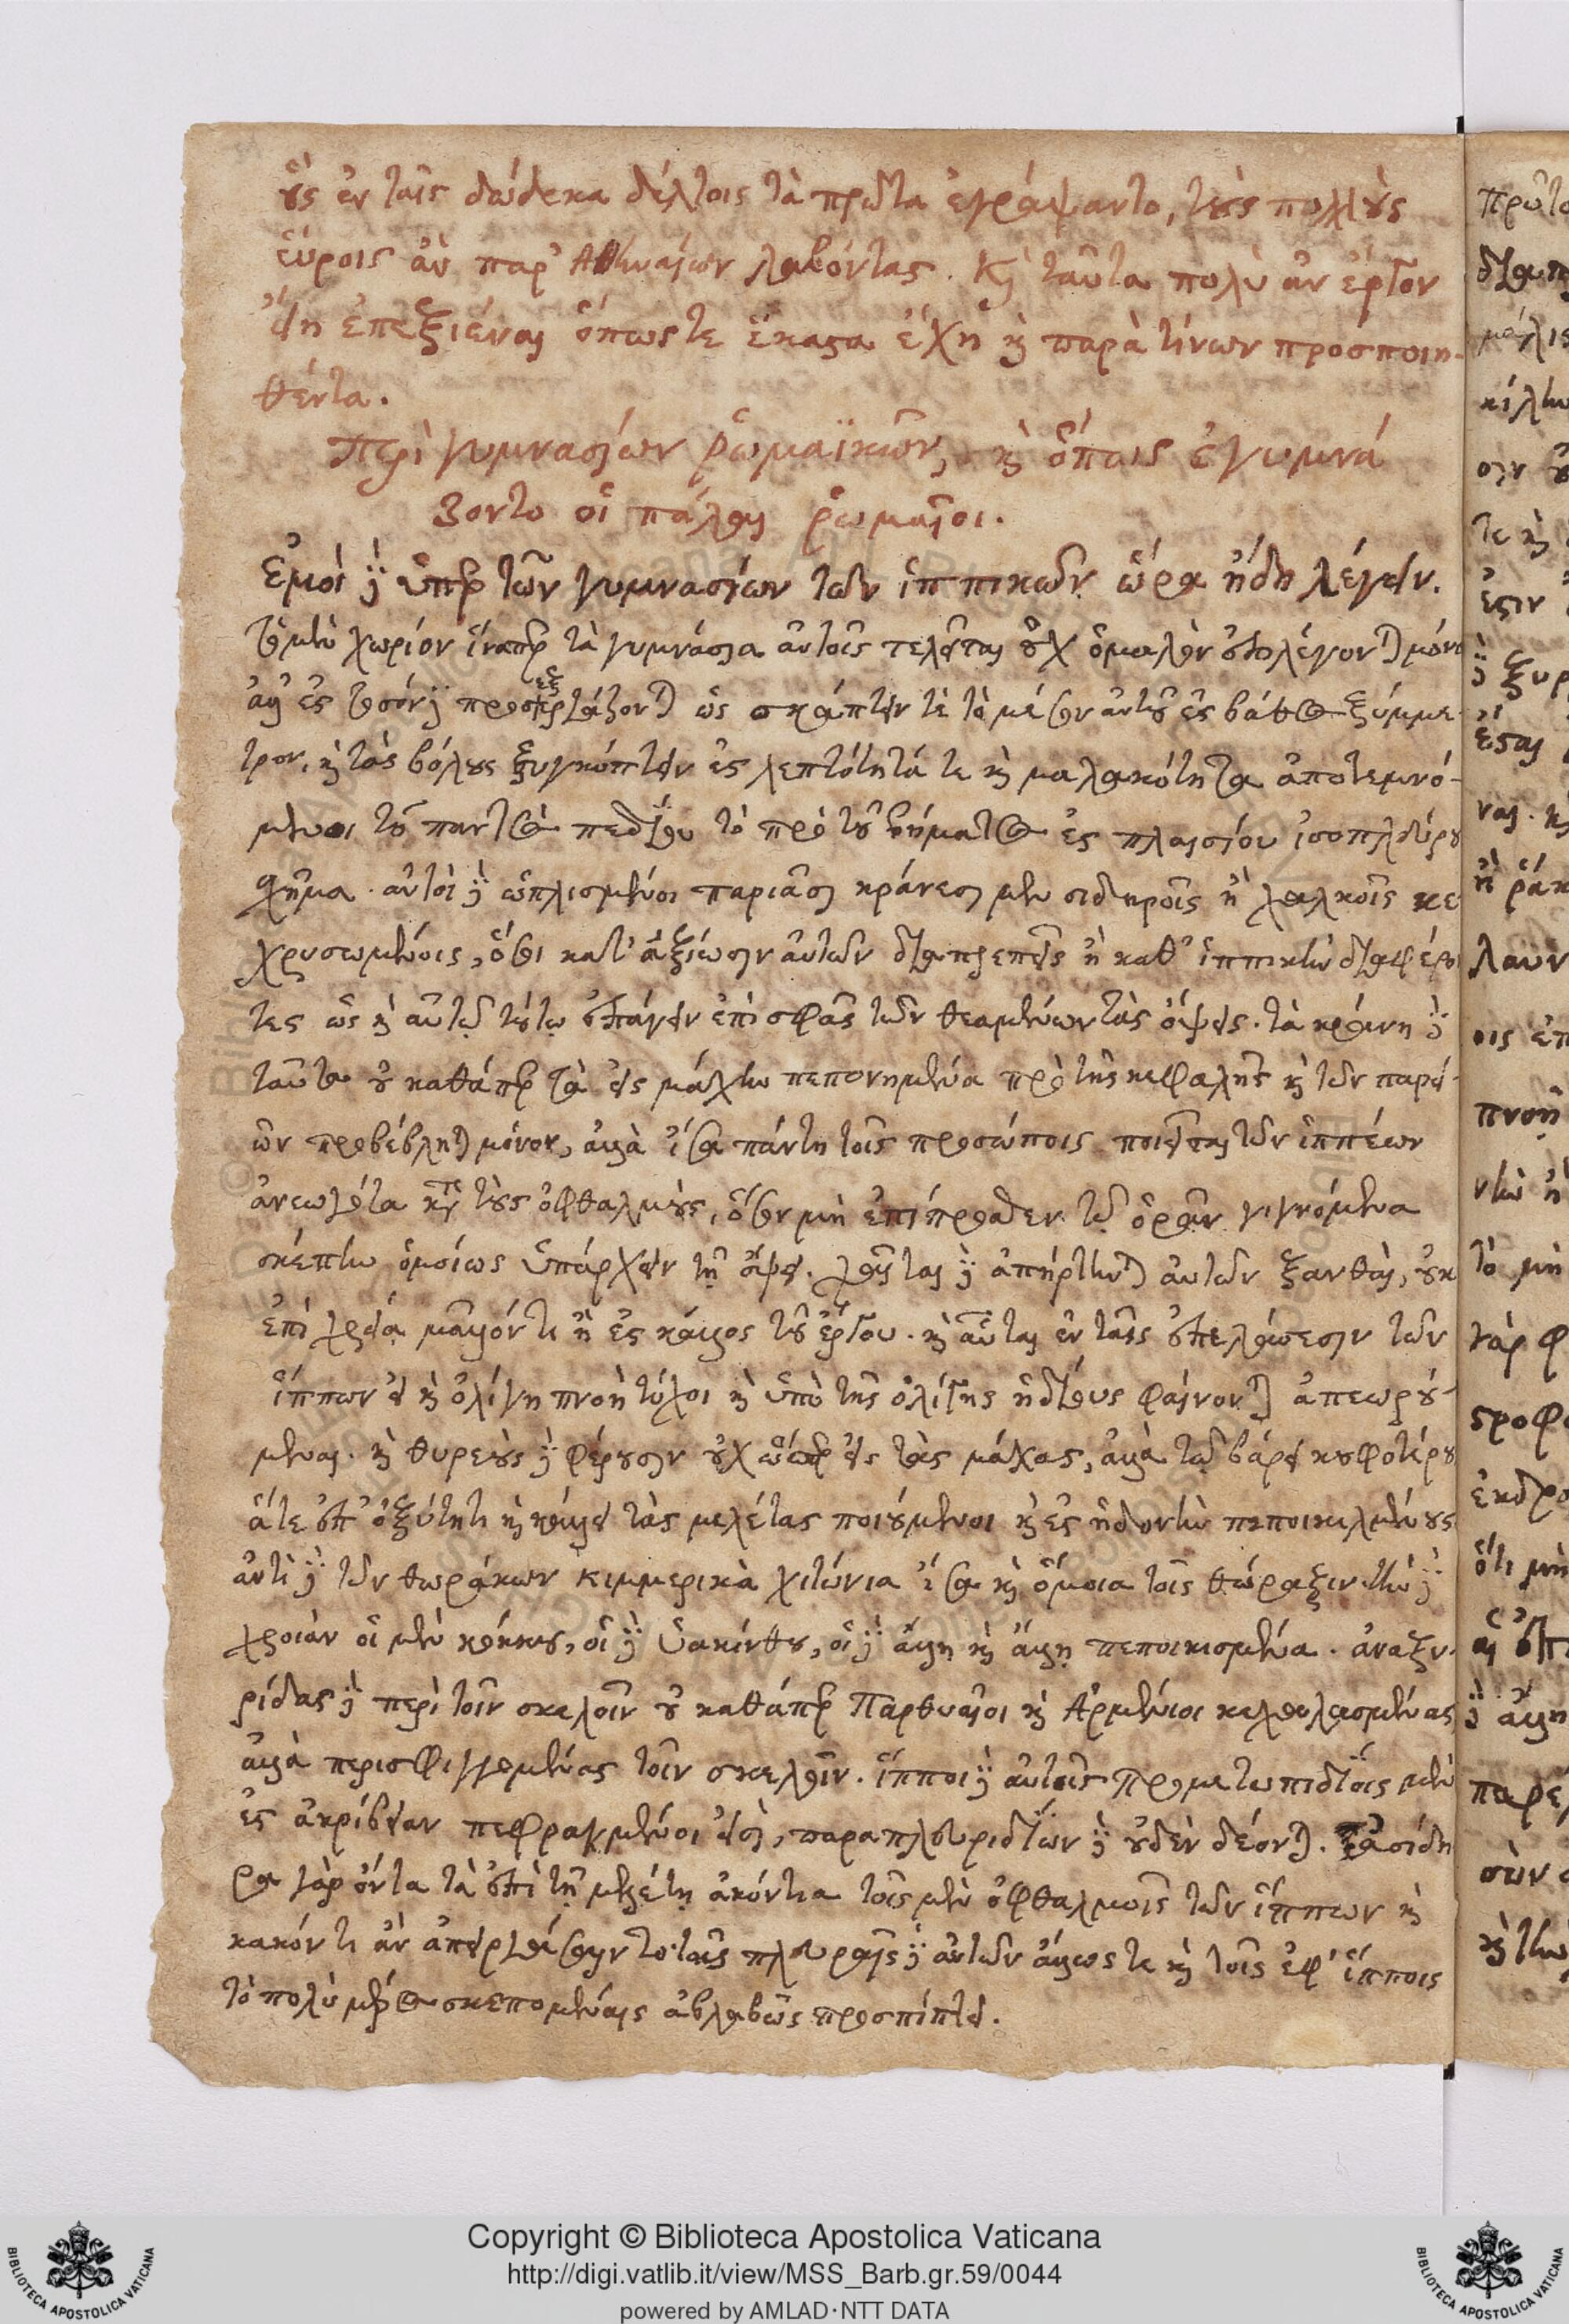 οὓς ἐν ταῖς δώδεκα δέλτοις τὰ πρῶτα ἐγράψαντο, τοὺς πολλοὺς
εὕροις ἂν παρ' Ἀθηναίων λαβόντας. κ̀ ταῦτα πολὺ ἂν ἔργον
εἴη ἐπεξιέναι ὅπως τε ἕκαστα ἔχη κ̀ παρὰ τίνων προσποιη-
θέντα.
Περὶ γυμνασίων ῥωμαϊκῶν, κ̀ ὅπως ἐγυμνά
ζοντο οἱ πάλαι ῥωμαῖοι.
Ἐμοὶ δὲ ὑπὲρ τῶν γυμνασίων τῶν ἱππικῶν ὥρα ἤδη λέγειν.
τὸ μὲν χωρίον ἵναπερ τὰ γυμνάσια αὐτοῖς τελεῖται οὐχ ὁμαλὸν ἐπιλέγονται μόνον
ἀλλ' ἐς τοσόνδε προσεξεργάζονται ὡς σκάπτειν τε τὸ μέσον αὐτοῦ ἐς βάθος ξύμμε-
τρον, κ̀ τὰς βόλους ξυγκόπτειν ἐς λεπτότητά τε κ̀ μαλακότητα ἀποτεμνό-
μενοι τοῦ παντὸς πεδίου τὸ πρὸ τοῦ βήματος ἐς πλαισίου ἰσοπλεύρου
σχῆμα. αὐτοὶ δὲ ὡπλισμένοι παριᾶσι κράνεσι μὲν σιδηροῖς ἢ χαλκοῖς κε
χρυσωμένοις, ὅσοι κατ' ἀξίωσιν αὐτῶν διαπρεπεῖς ἢ καθ' ἱππικὴν διαφέρον
τες ὡς κ̀ αὐτῷ τούτῳ ἐπάγειν ἐπὶ σφᾶς τῶν θεαμένων τὰς ὄψεις. τὰ κράνη δὲ
ταῦτα οὐ καθάπερ τὰ εἰς μάχην πεπονημένα πρὸ τῆς κεφαλῆς κ̀ τῶν παρει-
ῶν προβέβληται μόνον, ἀλλὰ ἴσα πάντη τοῖς προσώποις ποιεῖται τῶν ἱππέων
ἀνεωγότα κατὰ τοὺς ὀφθαλμοὺς, ὅσον μὴ ἐπίπροσθεν τῷ ὁρᾶν γιγνόμενα
σκέπην ὁμοίως ὑπάρχειν τῇ ὄψει. χαῖται δὲ ἀπήρτηνται αὐτῶν ξανθαὶ, οὐκ
ἐπὶ χρείᾳ μᾶλλόν τι ἢ ἐς κάλλος τοῦ ἔργου. κ̀ αὗται ἐν ταῖς ἐπελάσεσιν τῶν
ἵππων εἰ κ̀ ὀλίγη πνοὴ τύχοι κ̀ ὑπὸ τῆς ὀλίγης ἡδέως φαίνονται ἀπεωρού-
μεναι. κ̀ θυρεοὺς δὲ φέρουσιν οὐχ ὥσπερ εἰς τὰς μάχας, ἀλλὰ τῷ βάρει κουφοτέρους
ἅτε ἐπ' ὀξύτητι κ̀ κάλλει τὰς μελέτας ποιούμενοι κ̀ ἐς ἡδονὴν πεποικιλμένους
ἀντὶ δὲ τῶν θωράκων κιμμερικὰ χιτώνια ἴσα κ̀ ὅμοια τοῖς θώραξιν. τὴν δὲ
χροιὰν οἱ μὲν κόκκου, οἱ δὲ ὑακίνθου, οἱ δὲ ἄλλῃ κ̀ ἄλλῃ πεποικισμένα. ἀναξυ-
ρίδας δὲ περὶ τοῖν σκελοῖν οὐ καθάπερ Παρθυαῖοι κ̀ Ἀρμένιοι κεχαλασμένας
ἀλλὰ περισφιγγομένας τοῖν σκελοῖν. ἵπποι δὲ αὐτοῖς προμετωπιδίοις μὲν
ἐς ἀκρίβειαν πεφραγμένοι εἰσὶ, παραπλευριδίων δὲ οὐδὲν δέονται. τὰ ἀσίδη
ρα γὰρ ὄντα τὰ ἐπὶ τῇ μελέτῃ ἀκόντια τοῖς μὲν ὀφθαλμοῖς τῶν ἵππων κ̀
κακόν τι ἂν ἀπειργάσαιντο· ταῖς πλευραῖς δὲ αὐτῶν ἄλλως τε κ̀ τοῖς ἐφ' ἵπποις
τὸ πολὺ μέρος σκεπομέναις ἀβλαβῶς προσπίπτει.
Copyright © Biblioteca Apostolica Vaticana
http://digi.vatlib.it/view/MSS_Barb.gr.59/0044
powered by AMLAD·NTT DATA
BIBLIOTECA APOSTOLICA VATICANA
BIBLIOTECA APOSTOLICA VATICANA